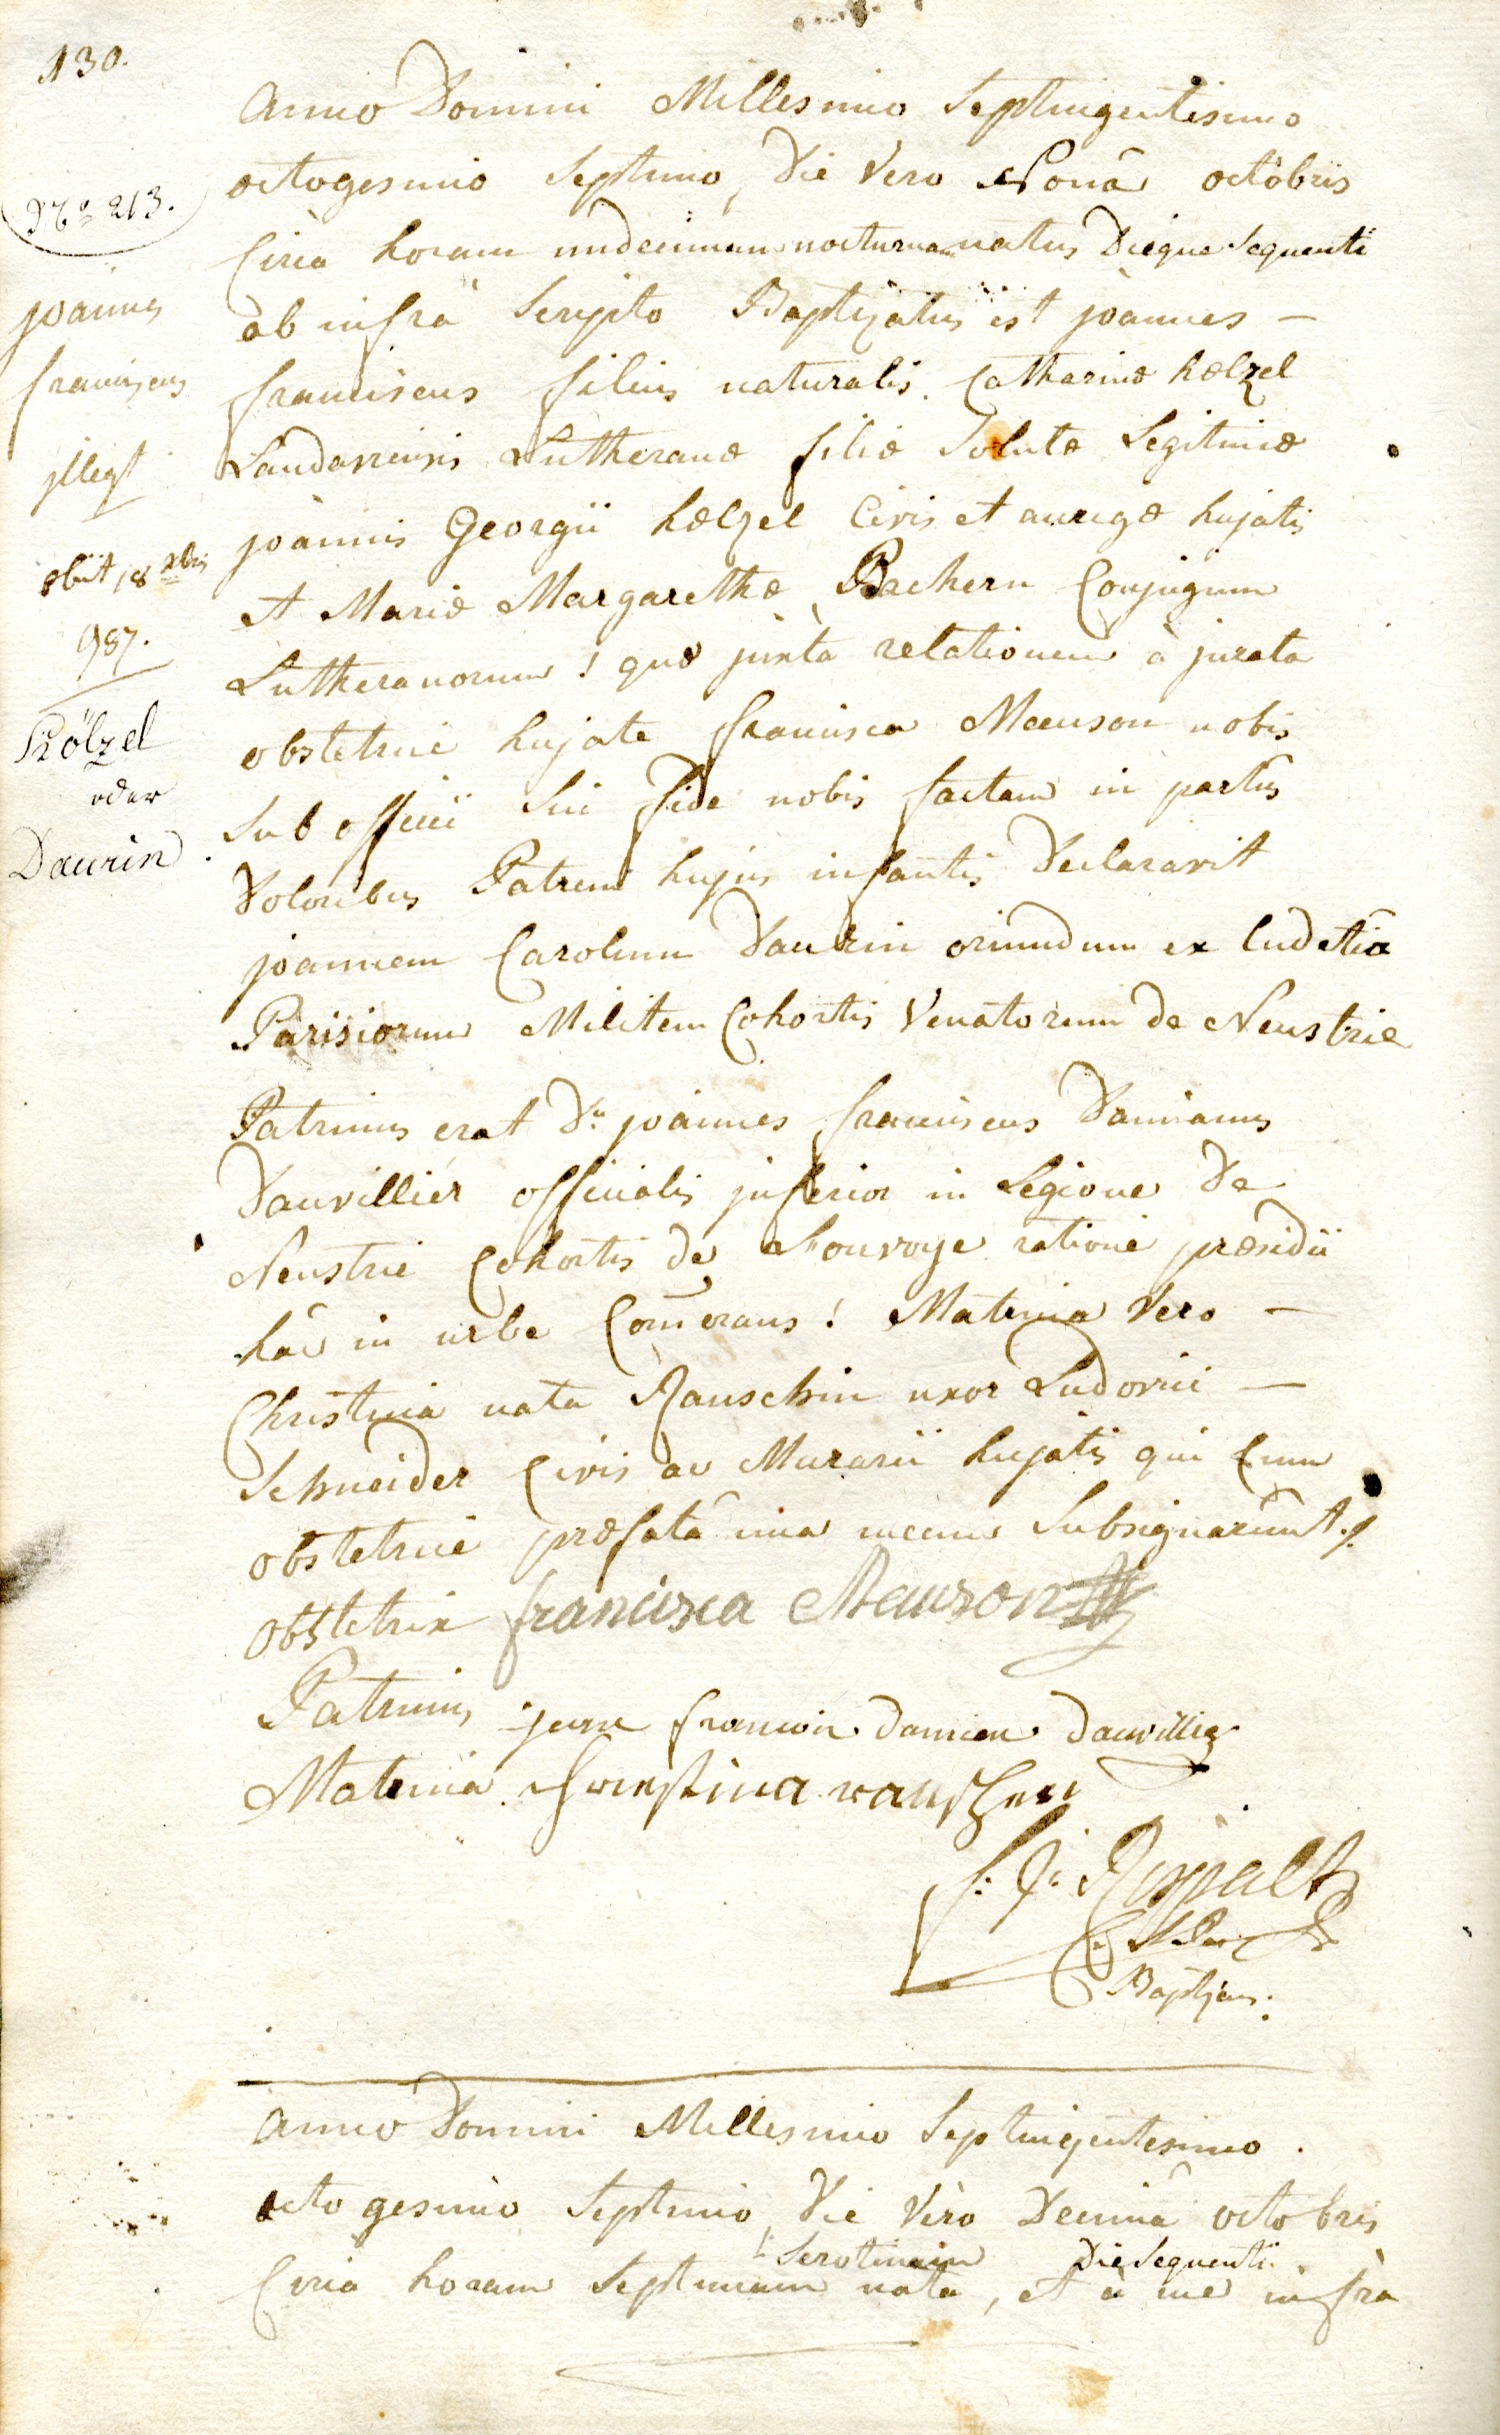 130.
Anno Domini Millesimo Septingentesimo
octogesimo Septimo, Die Vero Nonâ octobris
Circa horam undecimam nocturnam natus Dieque Sequenti
ab infrà Scripto Baptizatus est joannes —
franciscus filius naturalis Catharinæ hœlzel
Landaviensis Lutheranæ filiæ Solutæ Legitimæ
joannis Georgii hœlzel Civis et aurigæ hujatis
et Mariæ Margarethæ Bachern Conjugum
Lutheranorum! quæ juxta relationem à jurata
obstetrice hujate francisca Meeuson nobis
Sub officii Sui fide nobis factam in partus
Doloribus Patrem hujus infantis Declaravit
joannem Carolum Daurin oriundum ex Ludetia
Parisiorum Militem Cohortis Venatorum de Neustrie
Patrinus erat D: joannes franciscus Damianus
Dauvillier officialis inferior in Legione De
Neustrie Cohortis de Fouroye ratione præsidii
hâc in urbe Com̃orans! Matrina Vero —
Christina nata Rauschin uxor Ludovici —
Schneider Civis ac Murarii hujatis qui Cum
obstetrice præfatâ unà mecum Subsignarunt!
Obstetrix francisca Meuson
Patrinus jean francoi damien dauvillier
Matrina Cristina rauschin
Baptizans:
No 213.
joannes
franciscus
illegt
obiit 18 xbris
987.
Hölzel
oder
Daurin
Anno Domini Millesimo Septingentesimo
octogesimo Septimo, Die Vero Decimâ octobris
Serotinam Die Sequenti
Circa horam Septimam nata, et à me infrà